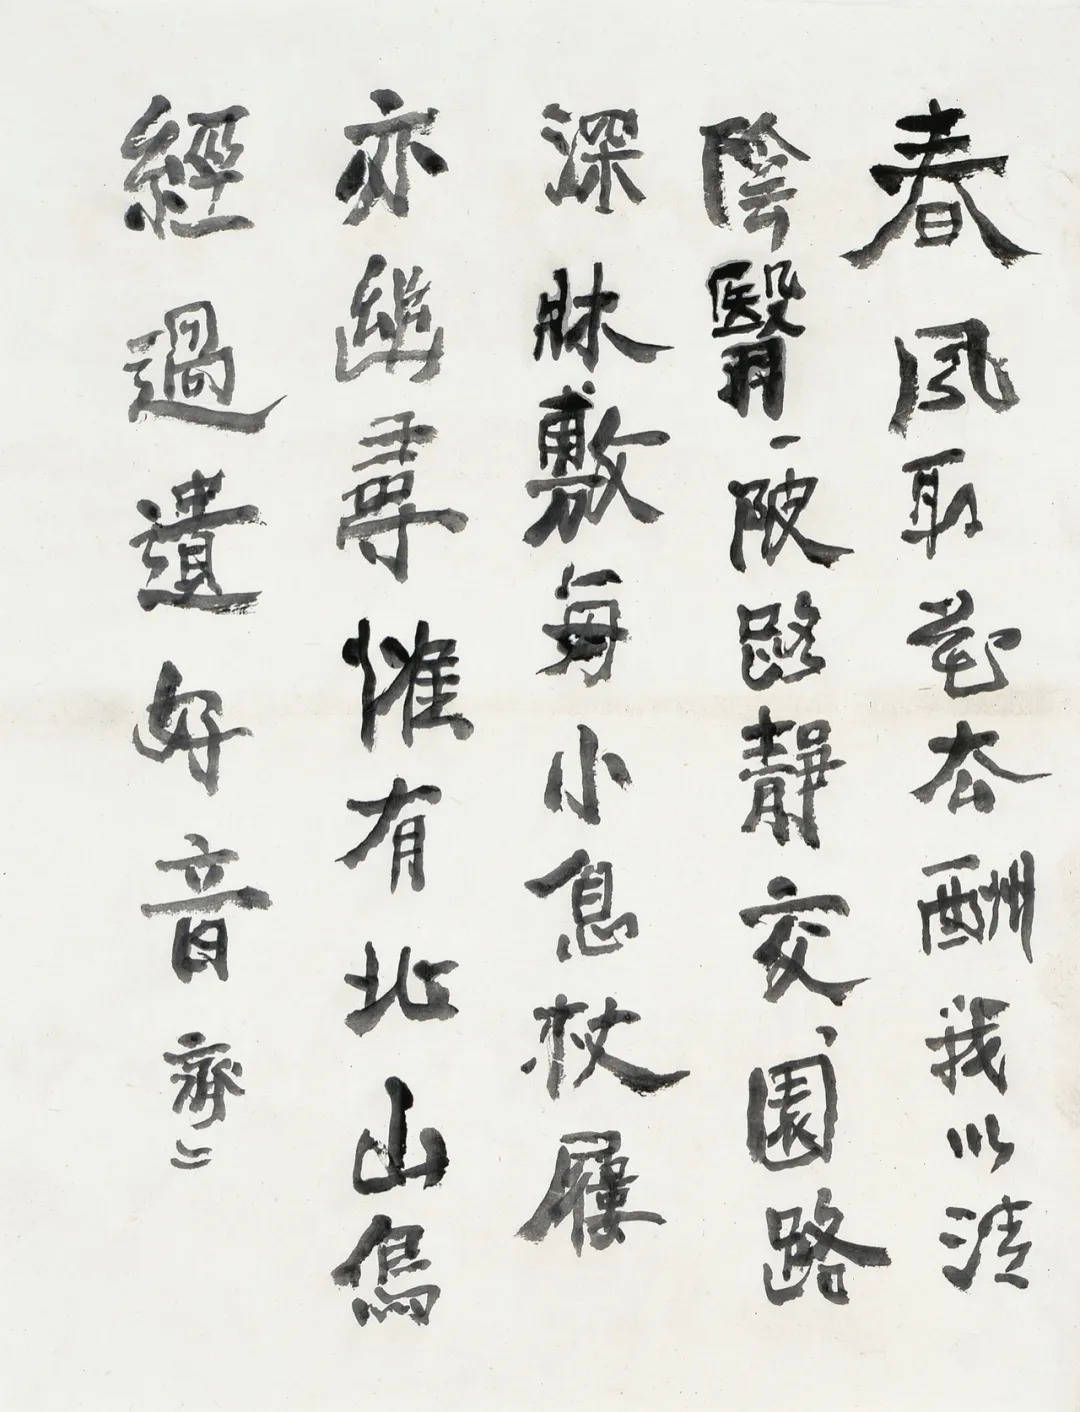 春風取花去酬我以清
陰翳、陂路靜交、園路
深牀敷每小息杖屨
亦幽尋惟有北山鳥
經過遺好音 齊〻